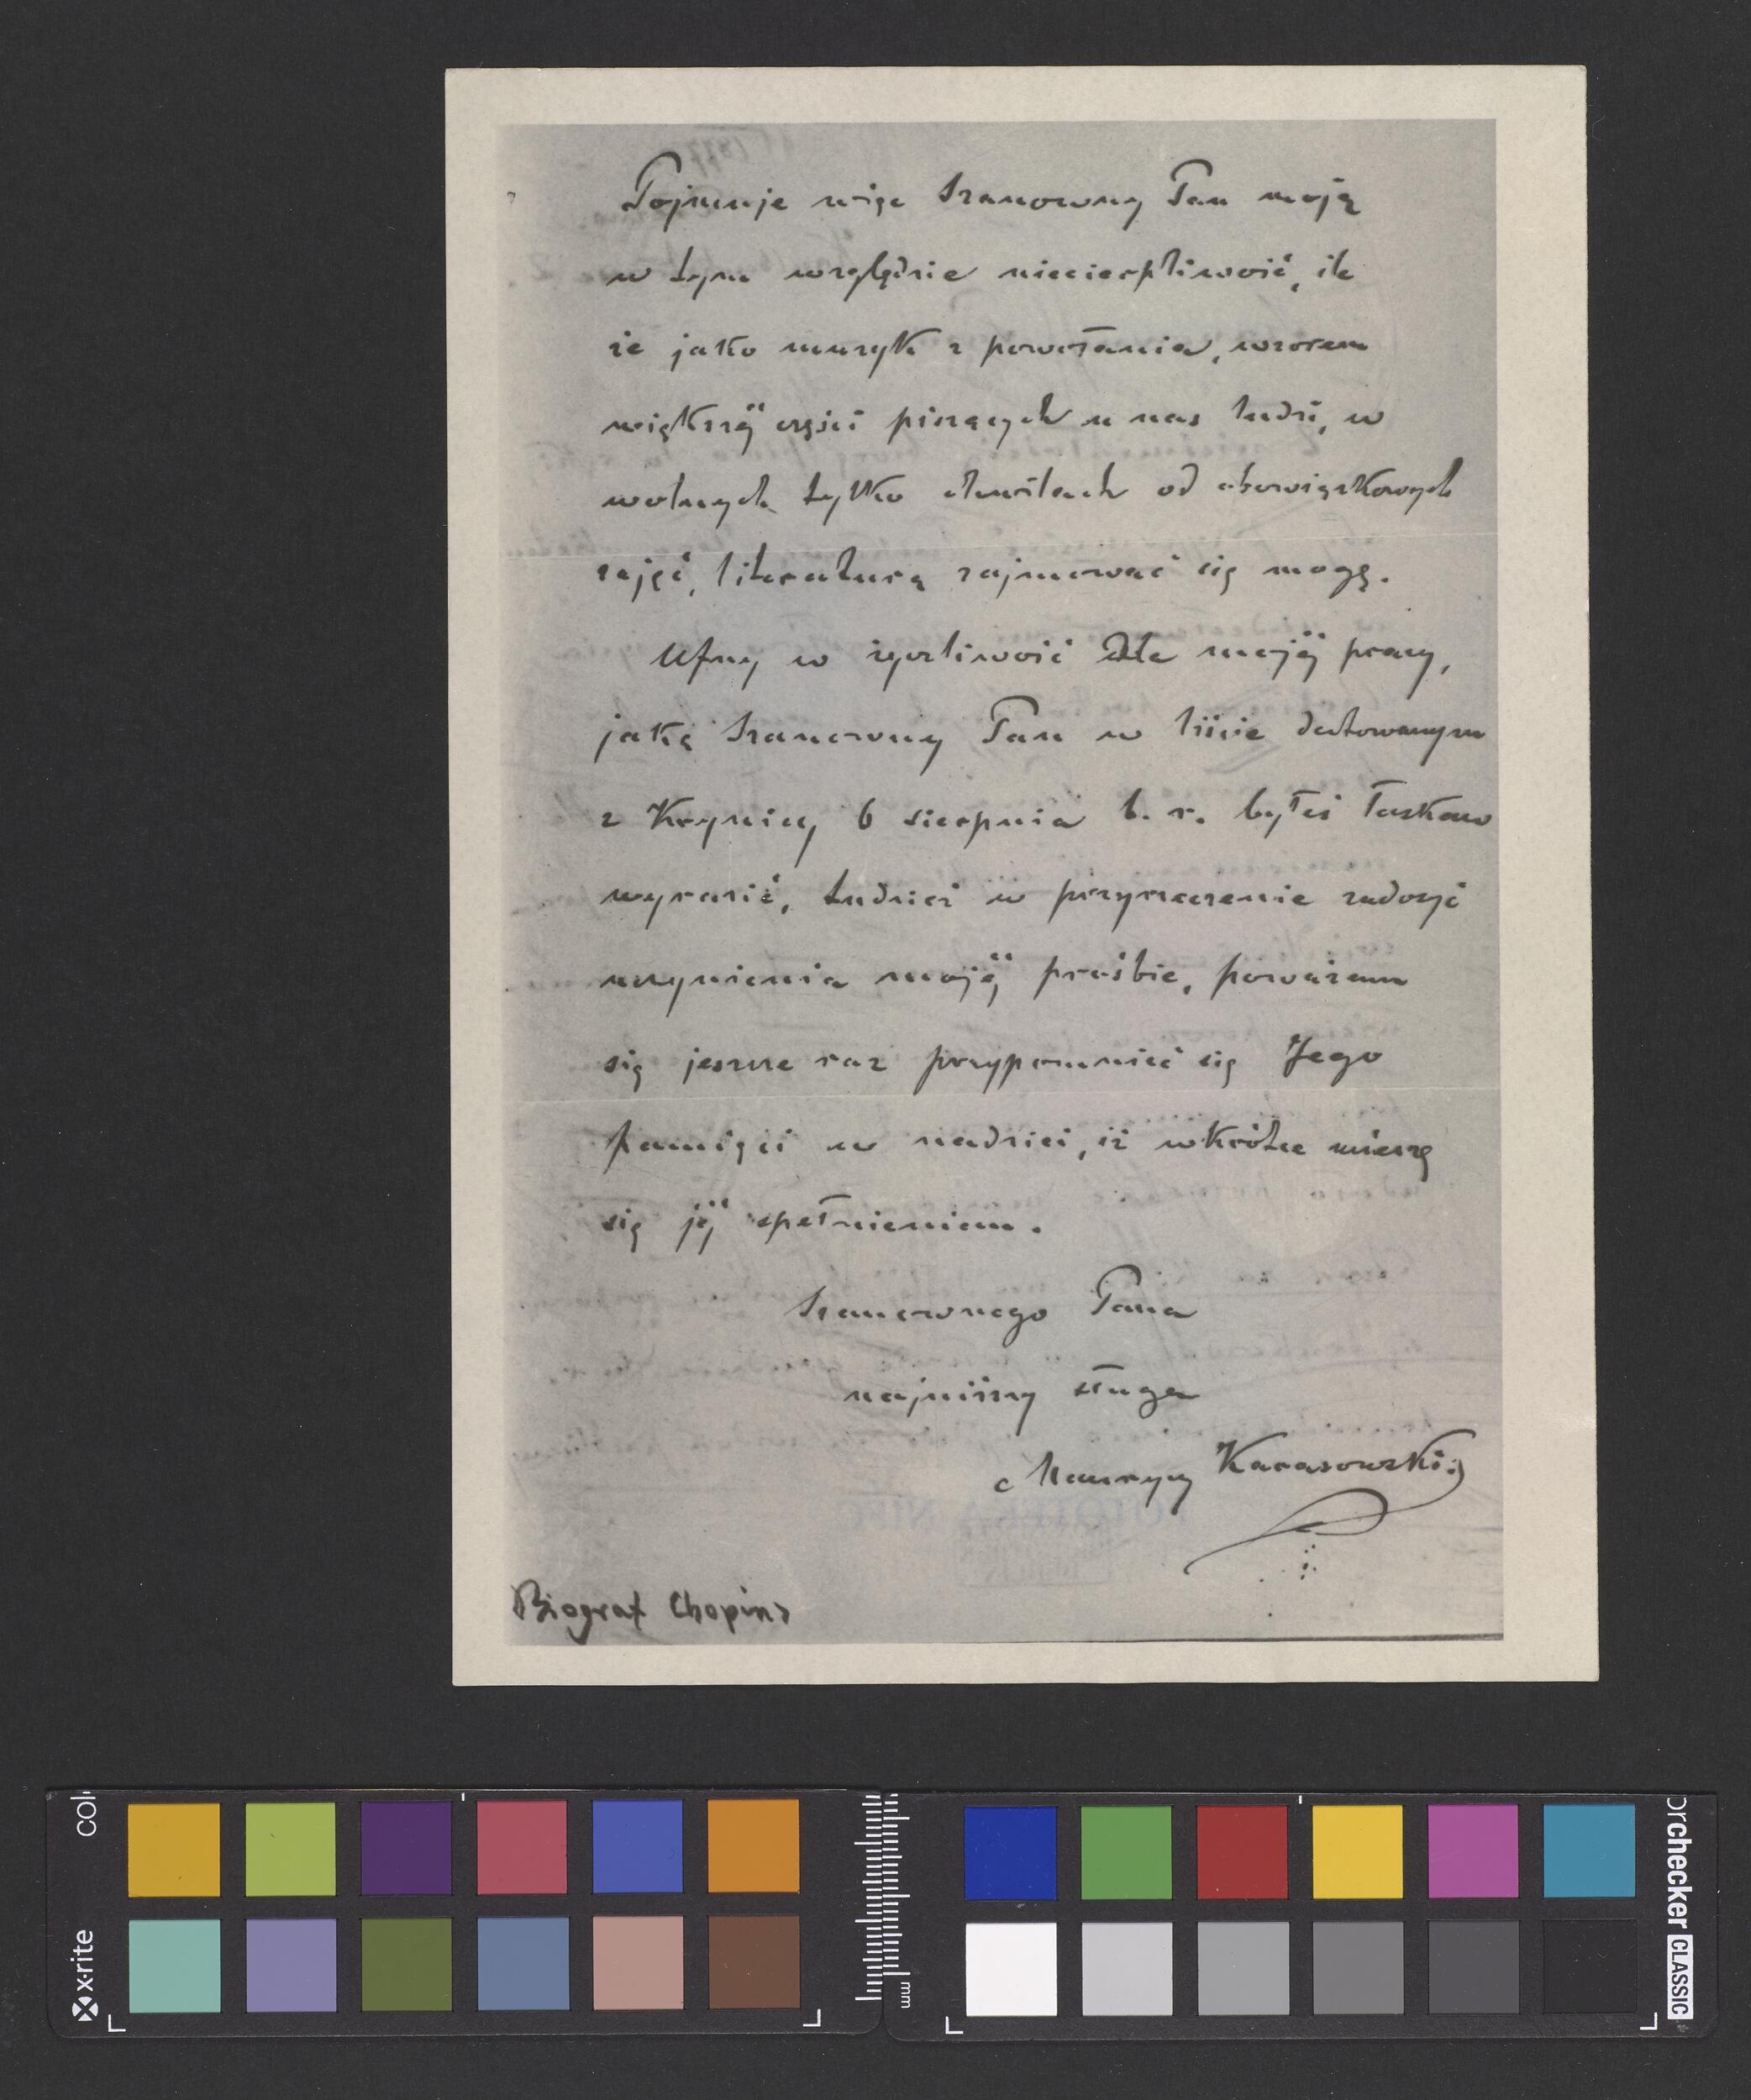 Pojmuje więc Szanowny Pan moją
w tym względzie niecierpliwość, ile
że jako muzyk z powołania, wzorem
większéj części piszących u nas ludzi, w
wolnych tylko chwilach od obowiązkowych
zajęć, literaturą zajmować się mogę.
Ufny w życzliwość dla mojéj pracy,
jaką Szanowny Pan w liście datowanym
z Krynicy 6 sierpnia b. r. byłeś łaskaw
wyrazić, tudzież w przyrzeczenie zadosyć
uczynienia mojéj prośbie, poważam
się jeszcze raz przypomnieć się Jego
pamięci w nadziei, iż wkrótce ucieszę
się jéj spełnieniem.
Szanownego Pana
najniższy sługa
Maurycy Karasowski
Biograf Chopina
FOTOTEKA NIFC
x-rite
col
orchecker CLASSIC
mm